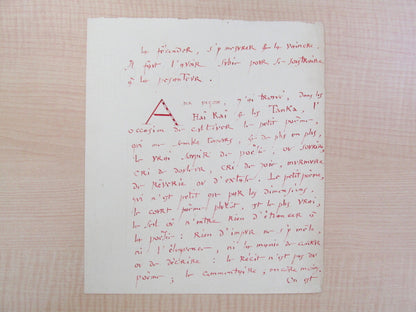 la s'y mesurer & la vaincre.
Il faut l'avoir subie pour se soustraire
à la pesanteur.
A mon , j'ai trouvé, dans les
Haï Kaï & les Tanka, l'
occasion de cultiver le petit poème,
qui me semble toujours, & de plus en plus,
le vrai soupir de poésie, ou sourire,
cri de douleur, cri de joie, murmure
de rêverie ou d'extase. Le petit poème,
qui n'est petit que par les dimensions,
le court poème plutôt, est le plus vrai,
le seul où n'entre rien d'étranger à
la poésie : Rien d'impur ne s'y mêle,
ni l'éloquence, ni la manie de conter
ou de décrire : le récit n'est pas du
poème ; le commentaire, encore moins.
On est